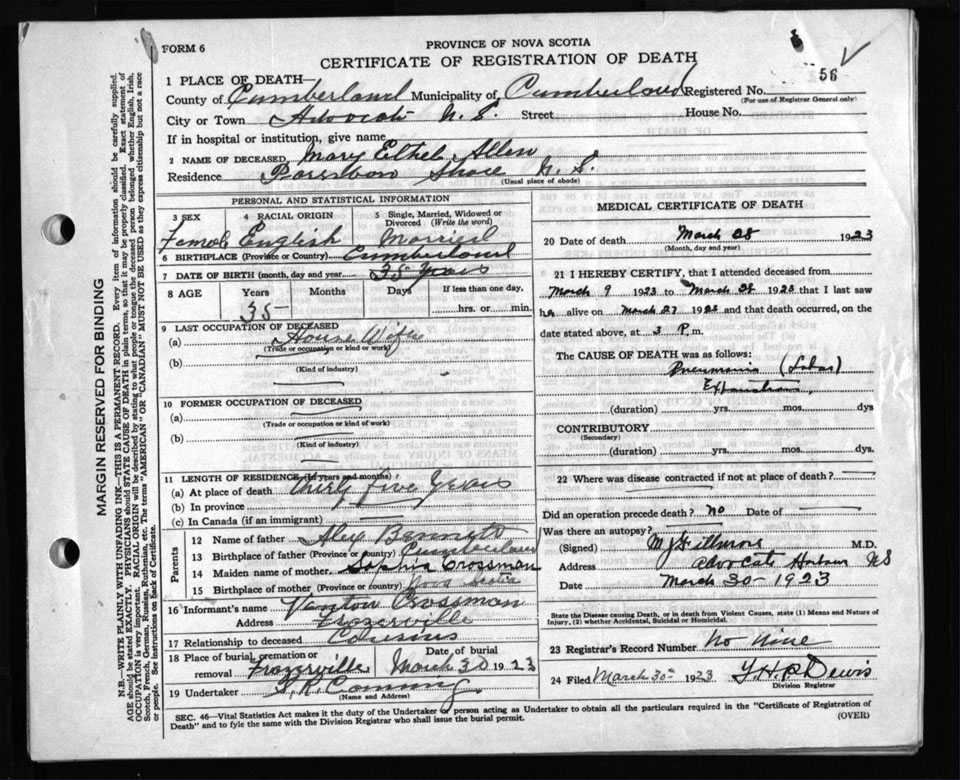 FORM 6
PROVINCE OF NOVA SCOTIA
CERTIFICATE OF REGISTRATION OF DEATH
56
1 PLACE OF DEATH—
County of Cumberland Municipality of Cumberland Registered No.
(For use of Registrar General only)
City or Town Advocate N. S. Street House No.
If in hospital or institution, give name
2 NAME OF DECEASED, Mary Ethel Allen
Residence Parrsboro Shore N. S.
(Usual place of abode)
PERSONAL AND STATISTICAL INFORMATION
3 SEX 4 RACIAL ORIGIN 5 Single, Married, Widowed or Divorced (Write the word)
Female English Married
6 BIRTHPLACE (Province or Country) Cumberland
7 DATE OF BIRTH (month, day and year) 35 Years
8 AGE Years Months Days If less than one day,
35 hrs. or min.
9 LAST OCCUPATION OF DECEASED
(a) House Wife
(Trade or occupation or kind of work)
(b)
(Kind of industry)
10 FORMER OCCUPATION OF DECEASED
(a)
(Trade or occupation or kind of work)
(b)
(Kind of industry)
11 LENGTH OF RESIDENCE (in years and months)
(a) At place of death Thirty five Years
(b) In province
(c) In Canada (if an immigrant)
Parents
12 Name of father Alex
13 Birthplace of father (Province or country) Cumberland
14 Maiden name of mother Sophia Crossman
15 Birthplace of mother (Province or country) Nova Scotia
16 Informant's name Crossman
Address Frazerville
17 Relationship to deceased Cousins
18 Place of burial cremation or removal Frazerville Date of burial March 30 1923
19 Undertaker
(Name and Address)
MEDICAL CERTIFICATE OF DEATH
20 Date of death March 28 1923
(Month, day and year)
21 I HEREBY CERTIFY, that I attended deceased from
March 9 1923 to March 28 1923 that I last saw
her alive on March 27 1923 and that death occurred, on the
date stated above, at 3 P.m.
The CAUSE OF DEATH was as follows:
Pneumonia (Lobar)
Exhaustion
(duration) yrs. mos. dys
CONTRIBUTORY
(Secondary)
(duration) yrs. mos. dys.
22 Where was disease contracted if not at place of death?
Did an operation precede death? no Date of
Was there an autopsy?
(Signed) M.D.
Advocate Harbour NS
Date March 30 - 1923
State the Disease causing Death, or in death from Violent Causes, state (1) Means and Nature of
Injury, (2) whether Accidental, Suicidal or Homicidal.
23 Registrar's Record Number No Nine
24 Filed March 30 1923
Division Registrar
SEC. 46—Vital Statistics Act makes it the duty of the Undertaker or person acting as Undertaker to obtain all the particulars required in the "Certificate of Registration of
Death" and to fyle the same with the Division Registrar who shall issue the burial permit.
(OVER)
MARGIN RESERVED FOR BINDING
N.B.—WRITE PLAINLY WITH UNFADING INK—THIS IS A PERMANENT RECORD. Every item of information should be carefully supplied.
AGE should be stated EXACTLY. PHYSICIANS should STATE CAUSE OF DEATH in plain terms, so that it may be properly classified. Exact statement of
OCCUPATION is very important. RACIAL ORIGIN will be described by stating to what people or tongue the deceased person belonged whether English, Irish,
Scotch, French, German, Russian, Ruthenian, etc. The terms "AMERICAN" OR "CANADIAN" MUST NOT BE USED as they express citizenship but not a race
or people. See instructions on back of Certificate.